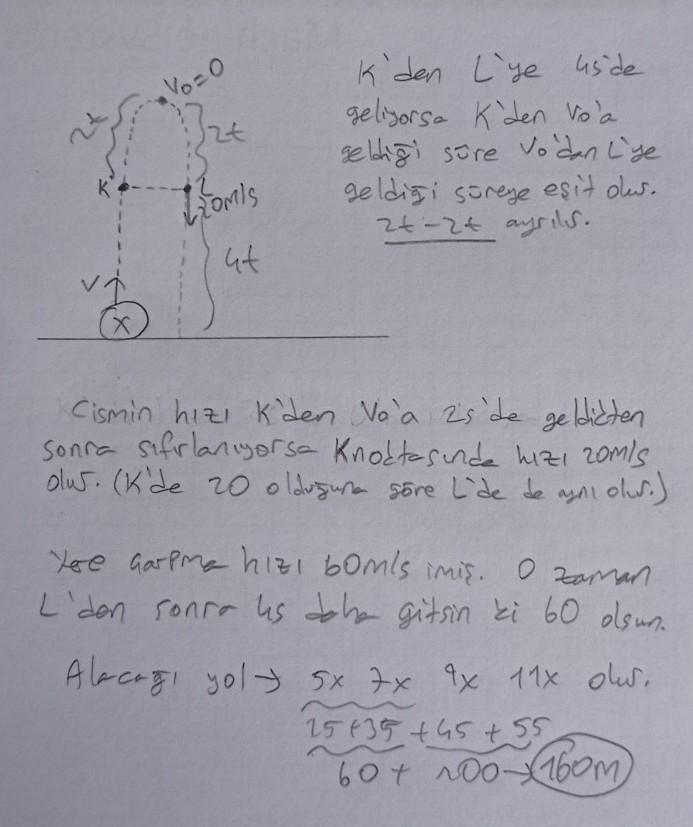 V₀=0
2t
2t
K
L
20m/s
4t
V
X
K'den L'ye 4s'de
geliyorsa K'den Vo'a
geldiği süre Vo'dan L'ye
geldiği süreye eşit olur.
2t-2t ayrılır.
Cismin hızı K'den Vo'a 2s'de geldikten
sonra sıfırlanıyorsa K noktasında hızı 20m/s
olur. (K'de 20 olduğuna göre L'de de aynı olur.)
Yere çarpma hızı 60m/s imiş. O zaman
L'den sonra 4s daha gitsin ki 60 olsun.
Alacağı yol → 5x 7x 9x 11x olur.
25+35+45+55
60+100→160m